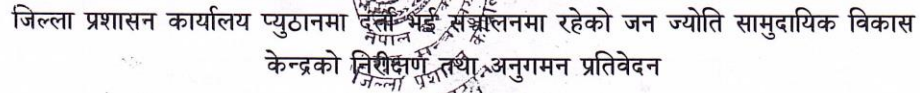 जिल्ला प्रशासन कार्यालय प्युठानमा दर्ता भई संञ्चालनमा रहेको जन ज्योति सामुदायिक विकास
केन्द्रको निरीक्षण तथा अनुगमन प्रतिवेदन
नेपाल
जिल्ला